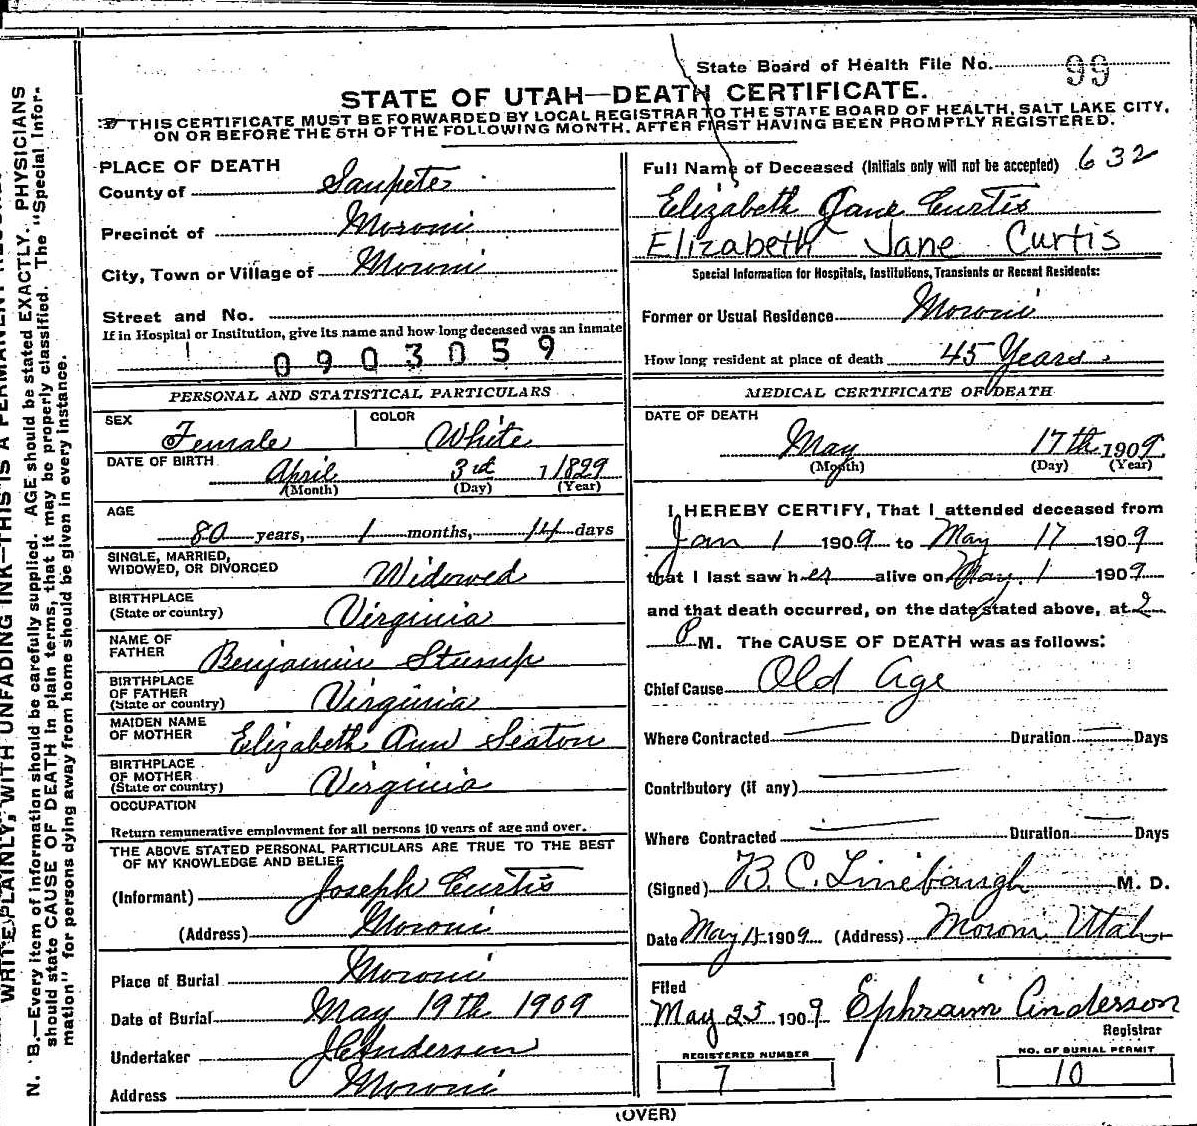 State Board of Health File No. 99
STATE OF UTAH—DEATH CERTIFICATE.
THIS CERTIFICATE MUST BE FORWARDED BY LOCAL REGISTRAR TO THE STATE BOARD OF HEALTH, SALT LAKE CITY,
ON OR BEFORE THE 5TH OF THE FOLLOWING MONTH, AFTER FIRST HAVING BEEN PROMPTLY REGISTERED.
WRITE PLAINLY, WITH UNFADING INK—THIS IS A PERMANENT
N. B.—Every item of information should be carefully supplied. AGE should be stated EXACTLY. PHYSICIANS
should state CAUSE OF DEATH in plain terms, that it may be properly classified. The "Special Infor-
mation" for persons dying away from home should be given in every instance.
PLACE OF DEATH
County of Sanpete
Precinct of Moroni
City, Town or Village of Moroni
Street and No.
If in Hospital or Institution, give its name and how long deceased was an inmate
0903059
PERSONAL AND STATISTICAL PARTICULARS
SEX Female COLOR White
DATE OF BIRTH April 3rd 1829
(Month) (Day) (Year)
AGE
80 years, 1 months, 14 days
SINGLE, MARRIED,
WIDOWED, OR DIVORCED Widowed
BIRTHPLACE
(State or country) Virginia
NAME OF
FATHER Benjamin Stump
BIRTHPLACE
OF FATHER
(State or country) Virginia
MAIDEN NAME
OF MOTHER Elizabeth Ann Seaton
BIRTHPLACE
OF MOTHER
(State or country) Virginia
OCCUPATION
Return remunerative employment for all persons 10 years of age and over.
THE ABOVE STATED PERSONAL PARTICULARS ARE TRUE TO THE BEST
OF MY KNOWLEDGE AND BELIEF
(Informant) Joseph Curtis
(Address) Moroni
Place of Burial Moroni
Date of Burial May 19th 1909
Undertaker J C Andersen
Address Moroni
Full Name of Deceased (Initials only will not be accepted) 632
Elizabeth Jane Curtis
Elizabeth Jane Curtis
Special Information for Hospitals, Institutions, Transients or Recent Residents:
Former or Usual Residence Moroni
How long resident at place of death 45 Years.
MEDICAL CERTIFICATE OF DEATH
DATE OF DEATH
May 17th 1909
(Month) (Day) (Year)
I HEREBY CERTIFY, That I attended deceased from
Jan 1 1909 to May 17 1909
that I last saw her alive on May. 1 1909
and that death occurred, on the date stated above, at 2
P M. The CAUSE OF DEATH was as follows:
Chief Cause Old Age
Where Contracted Duration Days
Contributory (if any)
Where Contracted Duration Days
(Signed) B. C. Linebaugh M. D.
Date May 1909 (Address) Moroni Utah
Filed
May 23 1909 Ephraim Anderson
Registrar
REGISTERED NUMBER
7
NO. OF BURIAL PERMIT
10
(OVER)